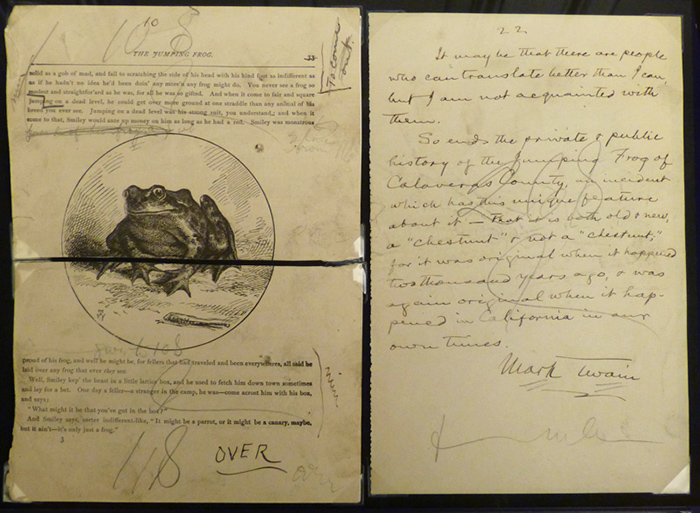 10
THE JUMPING FROG.
33
To come out.
solid as a gob of mud, and fall to scratching the side of his head with his hind foot as indifferent as
as if he hadn't no idea he'd been doin' any more'n any frog might do. You never see a frog so
modest and straightfor'ard as he was, for all he was so gifted. And when it come to fair and square
jumping on a dead level, he could get over more ground at one straddle than any animal of his
breed you ever see. Jumping on a dead level was his strong suit, you understand; and when it
come to that, Smiley would ante up money on him as long as he had a red. Smiley was monstrous
proud of his frog, and well he might be, for fellers that had traveled and been everywheres, all said he
laid over any frog that ever they see
Well, Smiley kep' the beast in a little lattice box, and he used to fetch him down town sometimes
and lay for a bet. One day a feller—a stranger in the camp, he was—come across him with his box,
and says:
"What might it be that you've got in the box?"
And Smiley says, sorter indifferent-like, "It might be a parrot, or it might be a canary, maybe,
but it ain't—it's only just a frog."
3
118
OVER
22
It may be that there are people
who can translate better than I can,
but I am not acquainted with
them.
So ends the private & public
history of the Jumping Frog of
Calaveras County, an incident
which has this unique feature
about it — that it is both old & new,
a "chestnut" & not a "chestnut;"
for it was original when it happened
two thousand years ago, & was
again original when it hap-
pened in California in our
own times.
Mark Twain